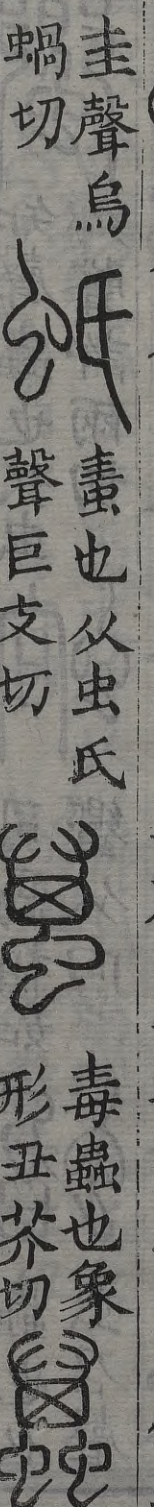 圭聲烏
蝸切
蚔
䖯也从虫氏
聲巨支切
蠆
毒蟲也象
形丑芥切